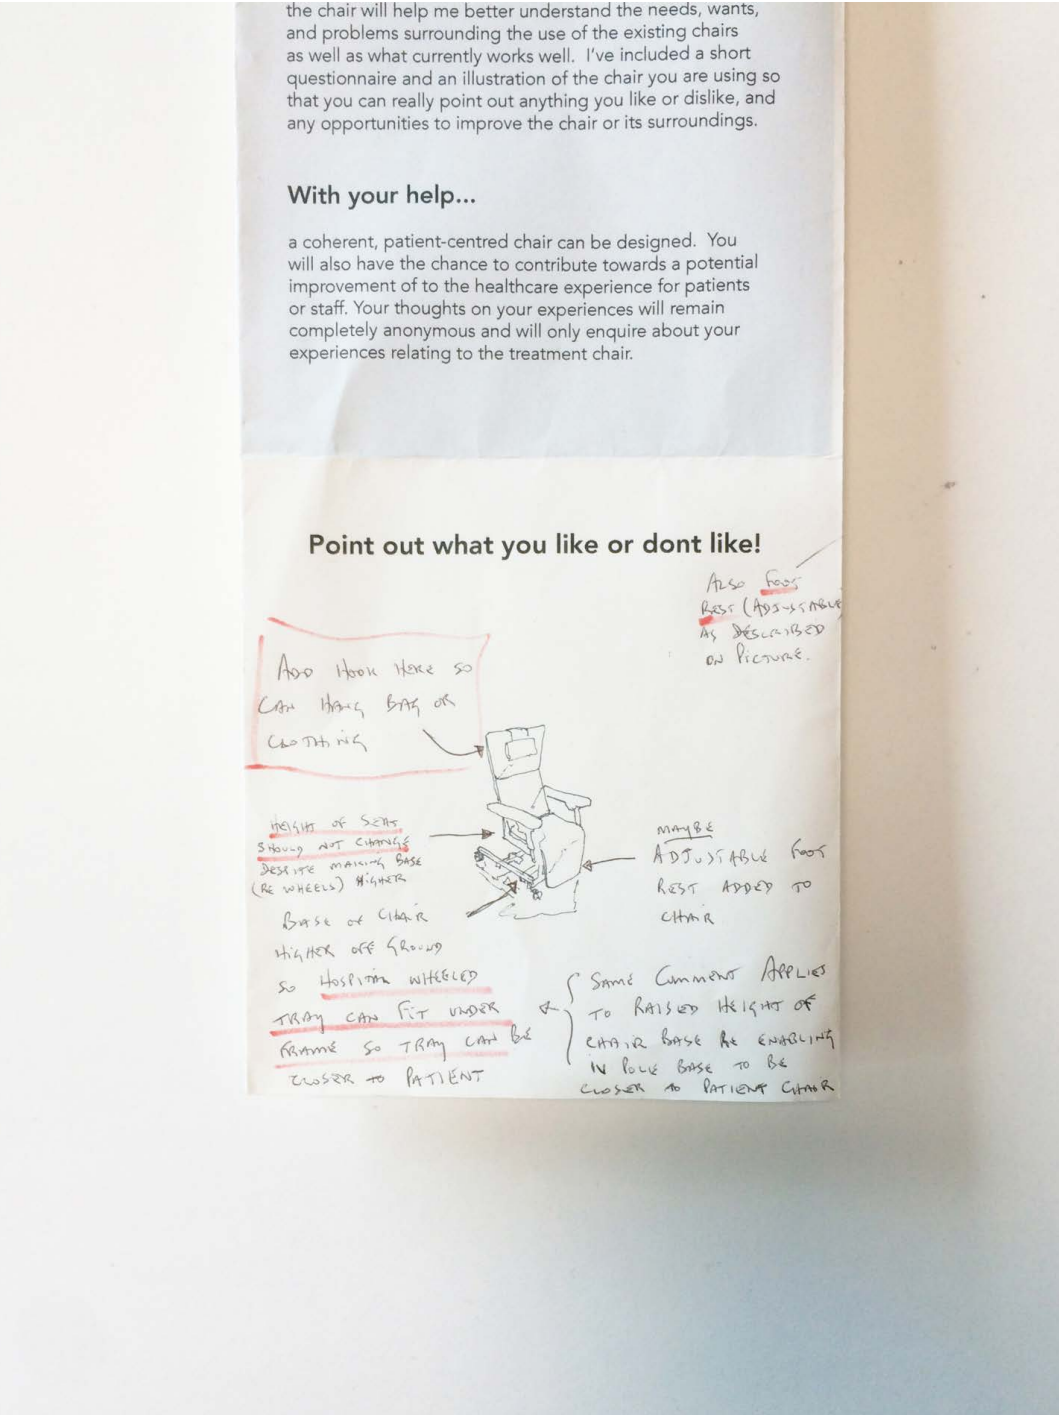 the chair will help me better understand the needs, wants,
and problems surrounding the use of the existing chairs
as well as what currently works well. I've included a short
questionnaire and an illustration of the chair you are using so
that you can really point out anything you like or dislike, and
any opportunities to improve the chair or its surroundings.
With your help...
a coherent, patient-centred chair can be designed. You
will also have the chance to contribute towards a potential
improvement of to the healthcare experience for patients
or staff. Your thoughts on your experiences will remain
completely anonymous and will only enquire about your
experiences relating to the treatment chair.
Point out what you like or dont like!
ALSO FOOT
REST (ADJUSTABLE)
AS DESCRIBED
ON PICTURE.
ADD HOOK HERE SO
CAN HANG BAG OR
CLOTHING
HEIGHT OF SEAT
SHOULD NOT CHANGE
DESPITE MAKING BASE
(RE WHEELS) HIGHER
BASE OF CHAIR
HIGHER OFF GROUND
SO HOSPITAL WHEELED
TRAY CAN FIT UNDER
FRAME SO TRAY CAN BE
CLOSER TO PATIENT
MAYBE
ADJUSTABLE FOOT
REST ADDED TO
CHAIR
SAME COMMENT APPLIES
TO RAISED HEIGHT OF
CHAIR BASE RE ENABLING
IV POLE BASE TO BE
CLOSER TO PATIENT CHAIR